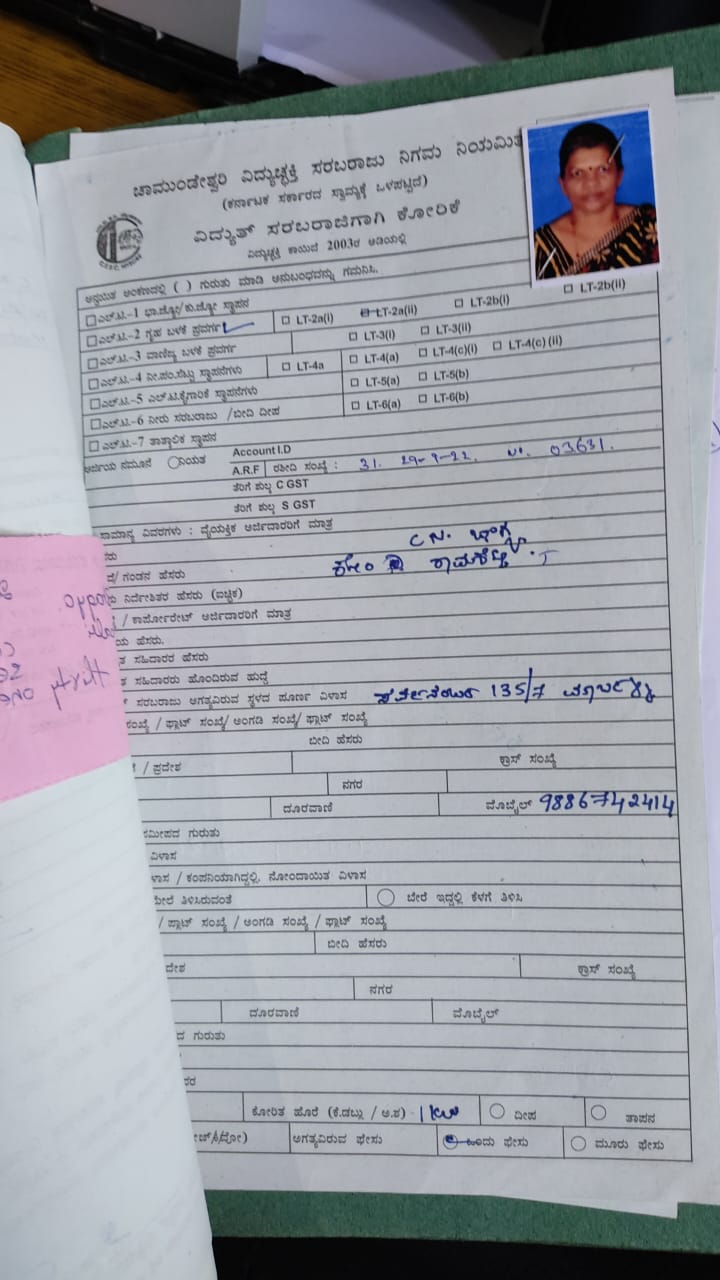 ಚಾಮುಂಡೇಶ್ವರಿ ವಿದ್ಯುಚ್ಛಕ್ತಿ ಸರಬರಾಜು ನಿಗಮ ನಿಯಮಿತ
(ಕರ್ನಾಟಕ ಸರ್ಕಾರದ ಸ್ವಾಮ್ಯಕ್ಕೆ ಒಳಪಟ್ಟದೆ)
ವಿದ್ಯುತ್ ಸರಬರಾಜಿಗಾಗಿ ಕೋರಿಕೆ
ವಿದ್ಯುಚ್ಛಕ್ತಿ ಕಾಯಿದೆ 2003ರ ಅಡಿಯಲ್ಲಿ
ಅನ್ವಯಿತ ಅಂಕಣದಲ್ಲಿ ( ) ಗುರುತು ಮಾಡಿ ಅನುಬಂಧವನ್ನು ಗಮನಿಸಿ.
ಎಲ್.ಟಿ.-1 ಭಾ.ಜ್ಯೋ/ಕು.ಜ್ಯೋ ಸ್ಥಾಪನ
ಎಲ್.ಟಿ.-2 ಗೃಹ ಬಳಕೆ ಪ್ರವರ್ಗ LT-2a(i) LT-2a(ii) LT-2b(i) LT-2b(ii)
ಎಲ್.ಟಿ.-3 ವಾಣಿಜ್ಯ ಬಳಕೆ ಪ್ರವರ್ಗ LT-3(i) LT-3(ii)
ಎಲ್.ಟಿ.-4 ನೀ.ಪಂ.ಸೆಟ್ಟು ಸ್ಥಾಪನೆಗಳು LT-4a LT-4(a) LT-4(c)(i) LT-4(c)(ii)
ಎಲ್.ಟಿ.-5 ಎಲ್.ಟಿ.ಕೈಗಾರಿಕೆ ಸ್ಥಾಪನೆಗಳು LT-5(a) LT-5(b)
ಎಲ್.ಟಿ.-6 ನೀರು ಸರಬರಾಜು /ಬೀದಿ ದೀಪ LT-6(a) LT-6(b)
ಎಲ್.ಟಿ.-7 ತಾತ್ಕಾಲಿಕ ಸ್ಥಾಪನ
ಅರ್ಜಿಯ ನಮೂನೆ ನಿಯತ Account I.D
A.R.F ರಶೀದಿ ಸಂಖ್ಯೆ : 31. 29-9-22. No. 03631.
ತೆರಿಗೆ ಶುಲ್ಕ C GST
ತೆರಿಗೆ ಶುಲ್ಕ S GST
ಸಾಮಾನ್ಯ ವಿವರಗಳು : ವೈಯಕ್ತಿಕ ಅರ್ಜಿದಾರರಿಗೆ ಮಾತ್ರ
ಸರು C N.
/ ಗಂಡನ ಹೆಸರು ಕೋಂ
ನಿರ್ದೇಶಿತರ ಹೆಸರು (ಐಚ್ಛಿಕ)
/ ಕಾರ್ಪೋರೇಟ್ ಅರ್ಜಿದಾರರಿಗೆ ಮಾತ್ರ
ಯ ಹೆಸರು.
ತ ಸಹಿದಾರರ ಹೆಸರು
ತ ಸಹಿದಾರರು ಹೊಂದಿರುವ ಹುದ್ದೆ
ಸರಬರಾಜು ಅಗತ್ಯವಿರುವ ಸ್ಥಳದ ಪೂರ್ಣ ವಿಳಾಸ 135/7
ಸಂಖ್ಯೆ / ಫ್ಲಾಟ್ ಸಂಖ್ಯೆ/ ಅಂಗಡಿ ಸಂಖ್ಯೆ/ ಫ್ಲಾಟ್ ಸಂಖ್ಯೆ
ಬೀದಿ ಹೆಸರು
/ ಪ್ರದೇಶ ಕ್ರಾಸ್ ಸಂಖ್ಯೆ
ನಗರ
ದೂರವಾಣಿ ಮೊಬೈಲ್ 9886742414
ಸಮೀಪದ ಗುರುತು
ವಿಳಾಸ
ಳಾಸ / ಕಂಪನಿಯಾಗಿದ್ದಲ್ಲಿ, ನೋಂದಾಯಿತ ವಿಳಾಸ
ಮೇಲೆ ತಿಳಿಸಿರುವಂತೆ ಬೇರೆ ಇದ್ದಲ್ಲಿ ಕೆಳಗೆ ತಿಳಿಸಿ
/ ಪ್ಲಾಟ್ ಸಂಖ್ಯೆ / ಅಂಗಡಿ ಸಂಖ್ಯೆ / ಫ್ಲಾಟ್ ಸಂಖ್ಯೆ
ಬೀದಿ ಹೆಸರು
ದೇಶ ಕ್ರಾಸ್ ಸಂಖ್ಯೆ
ನಗರ
ದೂರವಾಣಿ ಮೊಬೈಲ್
ದ ಗುರುತು
ಕೋರಿತ ಹೊರೆ (ಕೆ.ಡಬ್ಲು / ಅ.ಶ) 1 KW ದೀಪ ತಾಪನ
ಅಗತ್ಯವಿರುವ ಫೇಸು ಒಂದು ಫೇಸು ಮೂರು ಫೇಸು